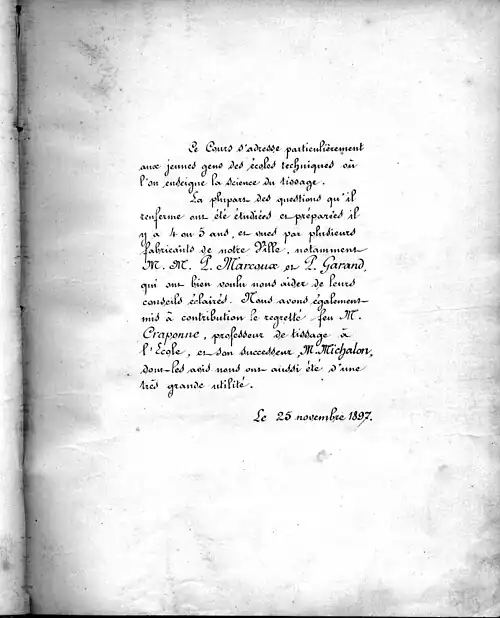 Ce Cours s'adresse particulièrement
aux jeunes gens des écoles techniques où
l'on enseigne la science du tissage.
La plupart des questions qu'il
renferme ont été étudiées et préparées il
y a 4 ou 5 ans, et vues par plusieurs
fabricants de notre Ville, notamment
M. M. P. Marcoux et P. Garand,
qui ont bien voulu nous aider de leurs
conseils éclairés. Nous avons également
mis à contribution le regretté feu M.
Craponne, professeur de tissage à
l'École, et son successeur, M. Michalon,
dont les avis nous ont aussi été d'une
très grande utilité.
Le 25 novembre 1897.